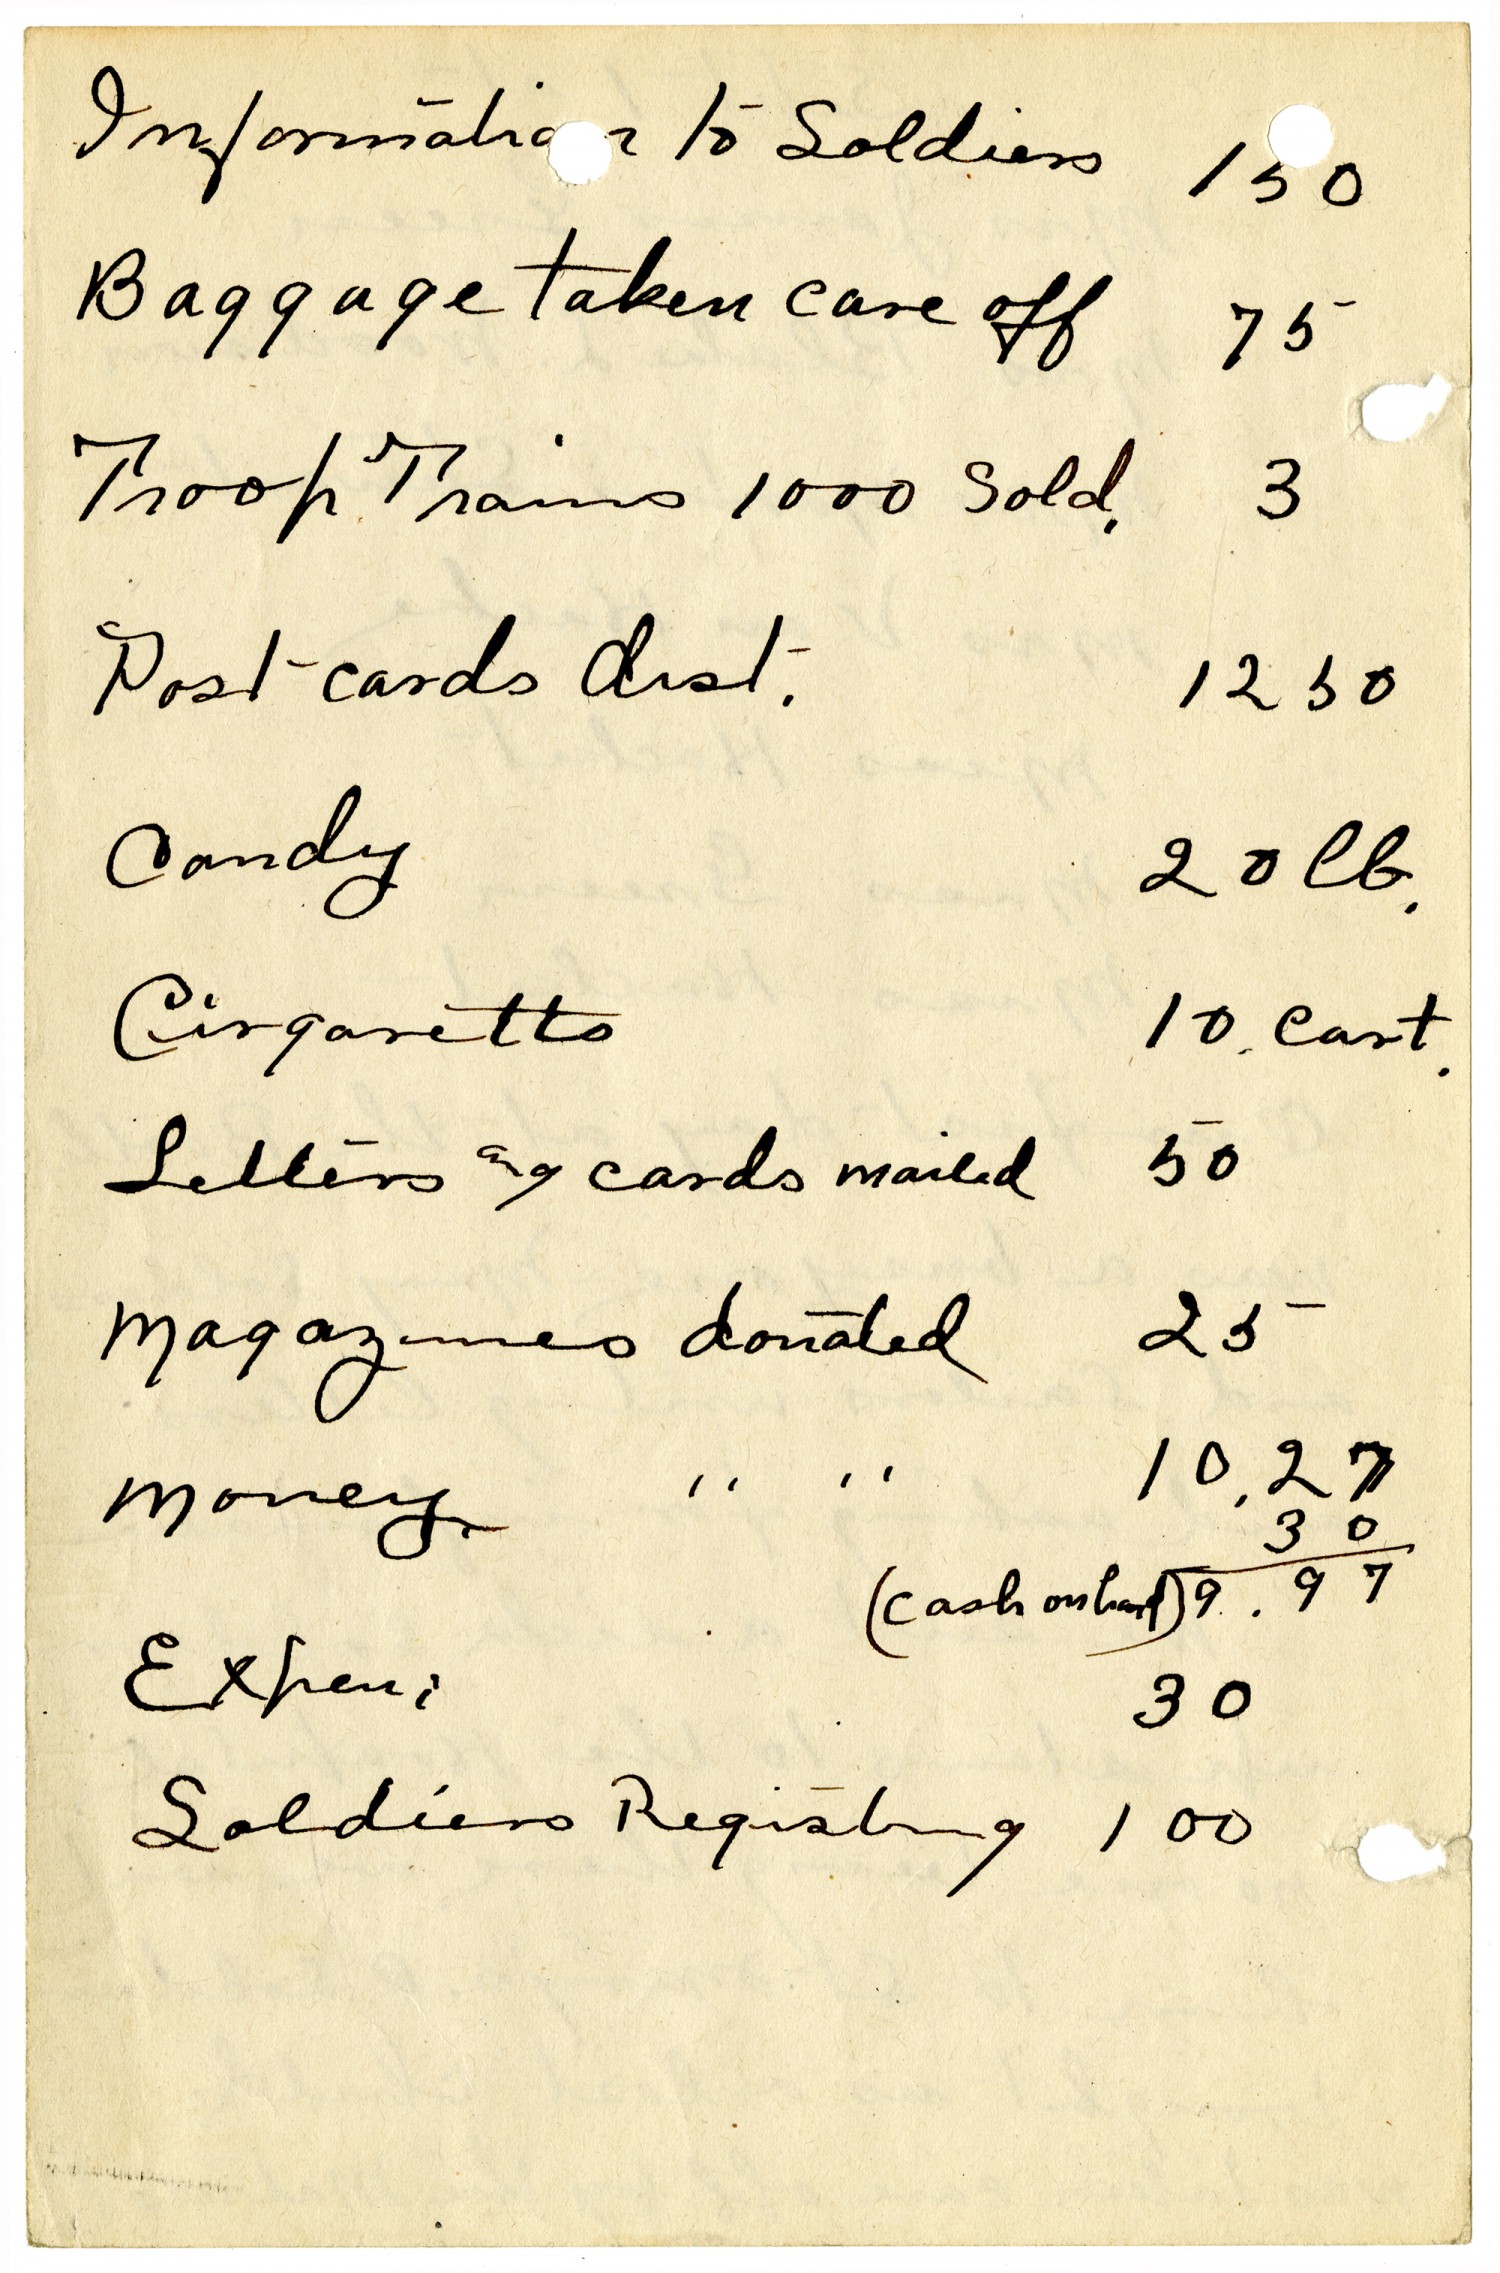 Information to Soldiers 150
Baggage taken care off 75
Troop Trains 1000 Sold. 3
Post cards dist. 1250
Candy 20 lb.
Cirgaretts 10. Cart.
Letters and cards mailed 50
Magazines donated 25
Money " " 10.27
30
(cash on hand) 9.97
Expen: 30
Soldiers Registring 100